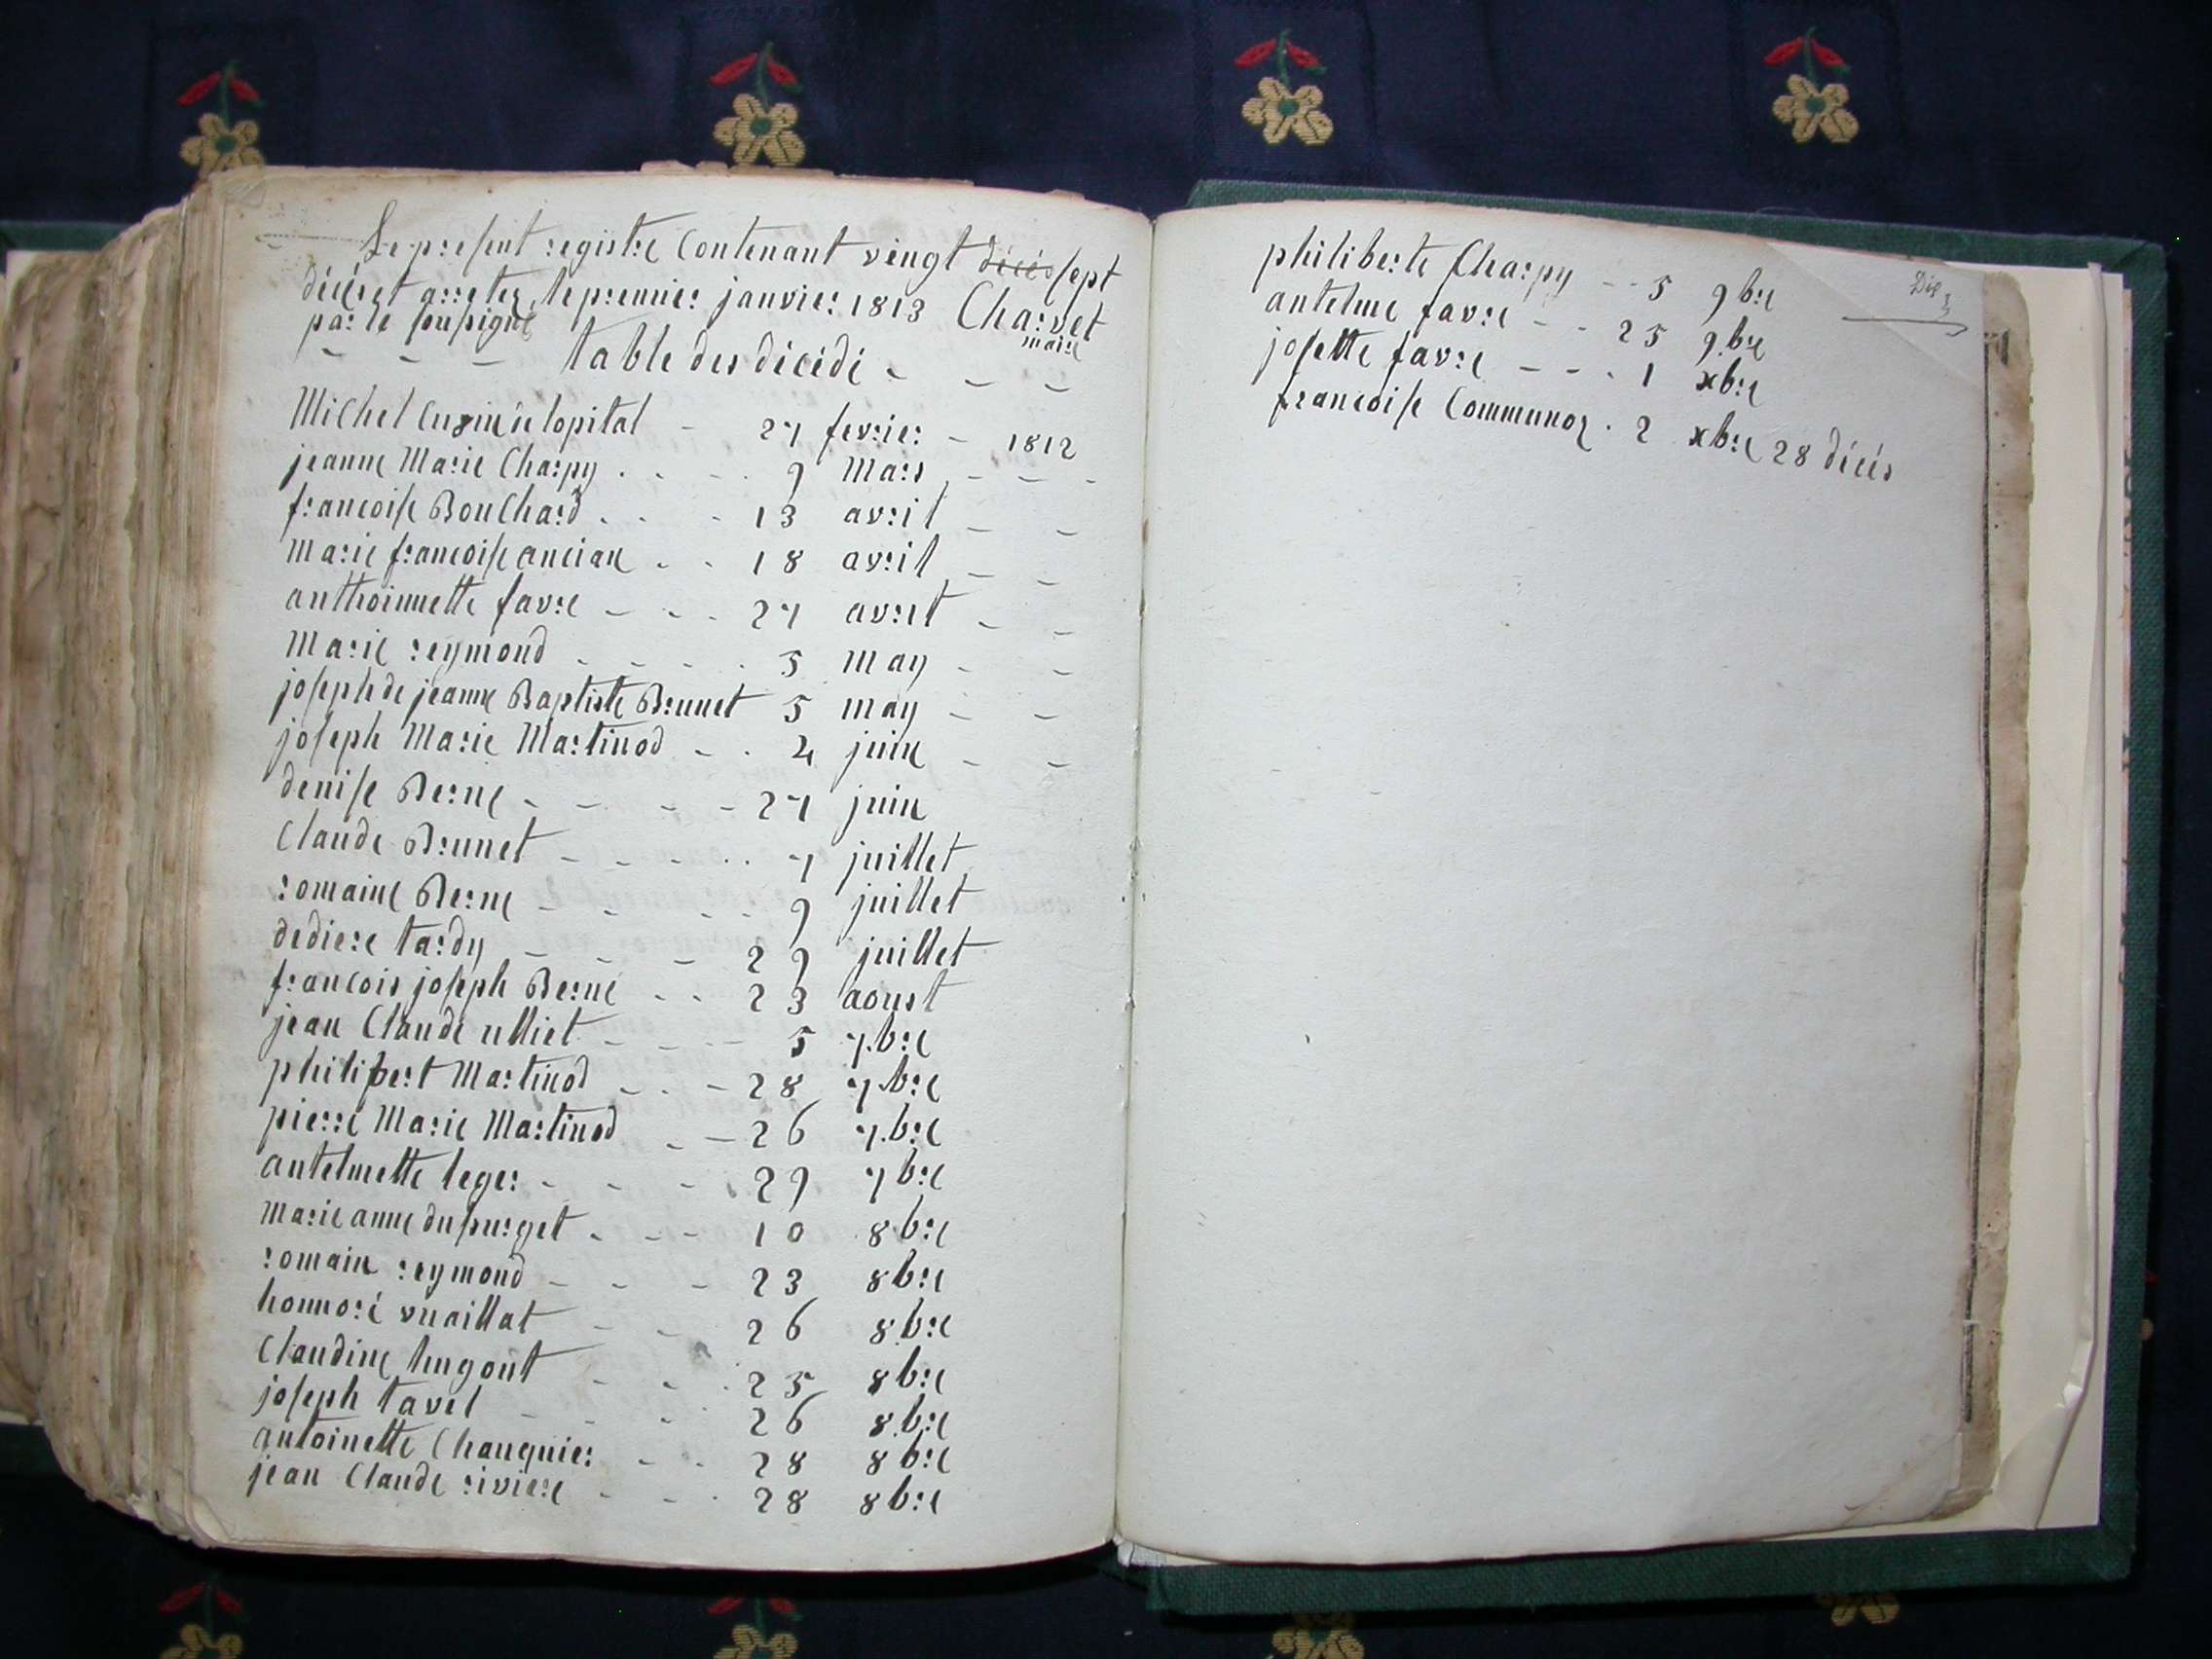 Le present registre Contenant vingt décés sept
décés et arretez le premier janvier 1813 Charvet
par le soussigné maire
table des décédé
Michel Cuzin de lopital - 27 fevrier - 1812
jeanne Marie Charpy . . - . 9 mars - - -
francoise Bouchard . . - 13 avril - -
marie francoise ancian . . 18 avril - -
anthoinnette favre - - . 27 avril - -
Marie reymond - - - . 5 may - -
joseph de jeanne Baptiste Brunet 5 may - -
joseph Marie Martinod - . 4 juin - -
denise Berne - - - - 27 juin
Claude Brunet - - - . . 7 juillet
romaine Berne - - - - 9 juillet
dediere tardy - - - 29 juillet
francois joseph Berne - - 23 aoust
jean Claude ulliet - - - 5 7.bre
philibert Martinod - . - 28 7bre
pierre Marie Martinod - - 26 7.bre
antelmette leger - - - 29 7bre
marie anne dupurget . - - 10 8bre
romain reymond - - - 23 8bre
honnoré vuaillat - - 26 8.bre
Claudine hugont - - . 25 8bre
joseph tavel - - - . 26 8.bre
antoinette Chanquier - . 28 8bre
jean Claude riviere - - . 28 8bre
Die
philiberte Charpy - - 5 9bre
antelme favre - - 25 9.bre
josette favre - - . 1 xbre
francoise Communoz . 2 xbre 28 décés